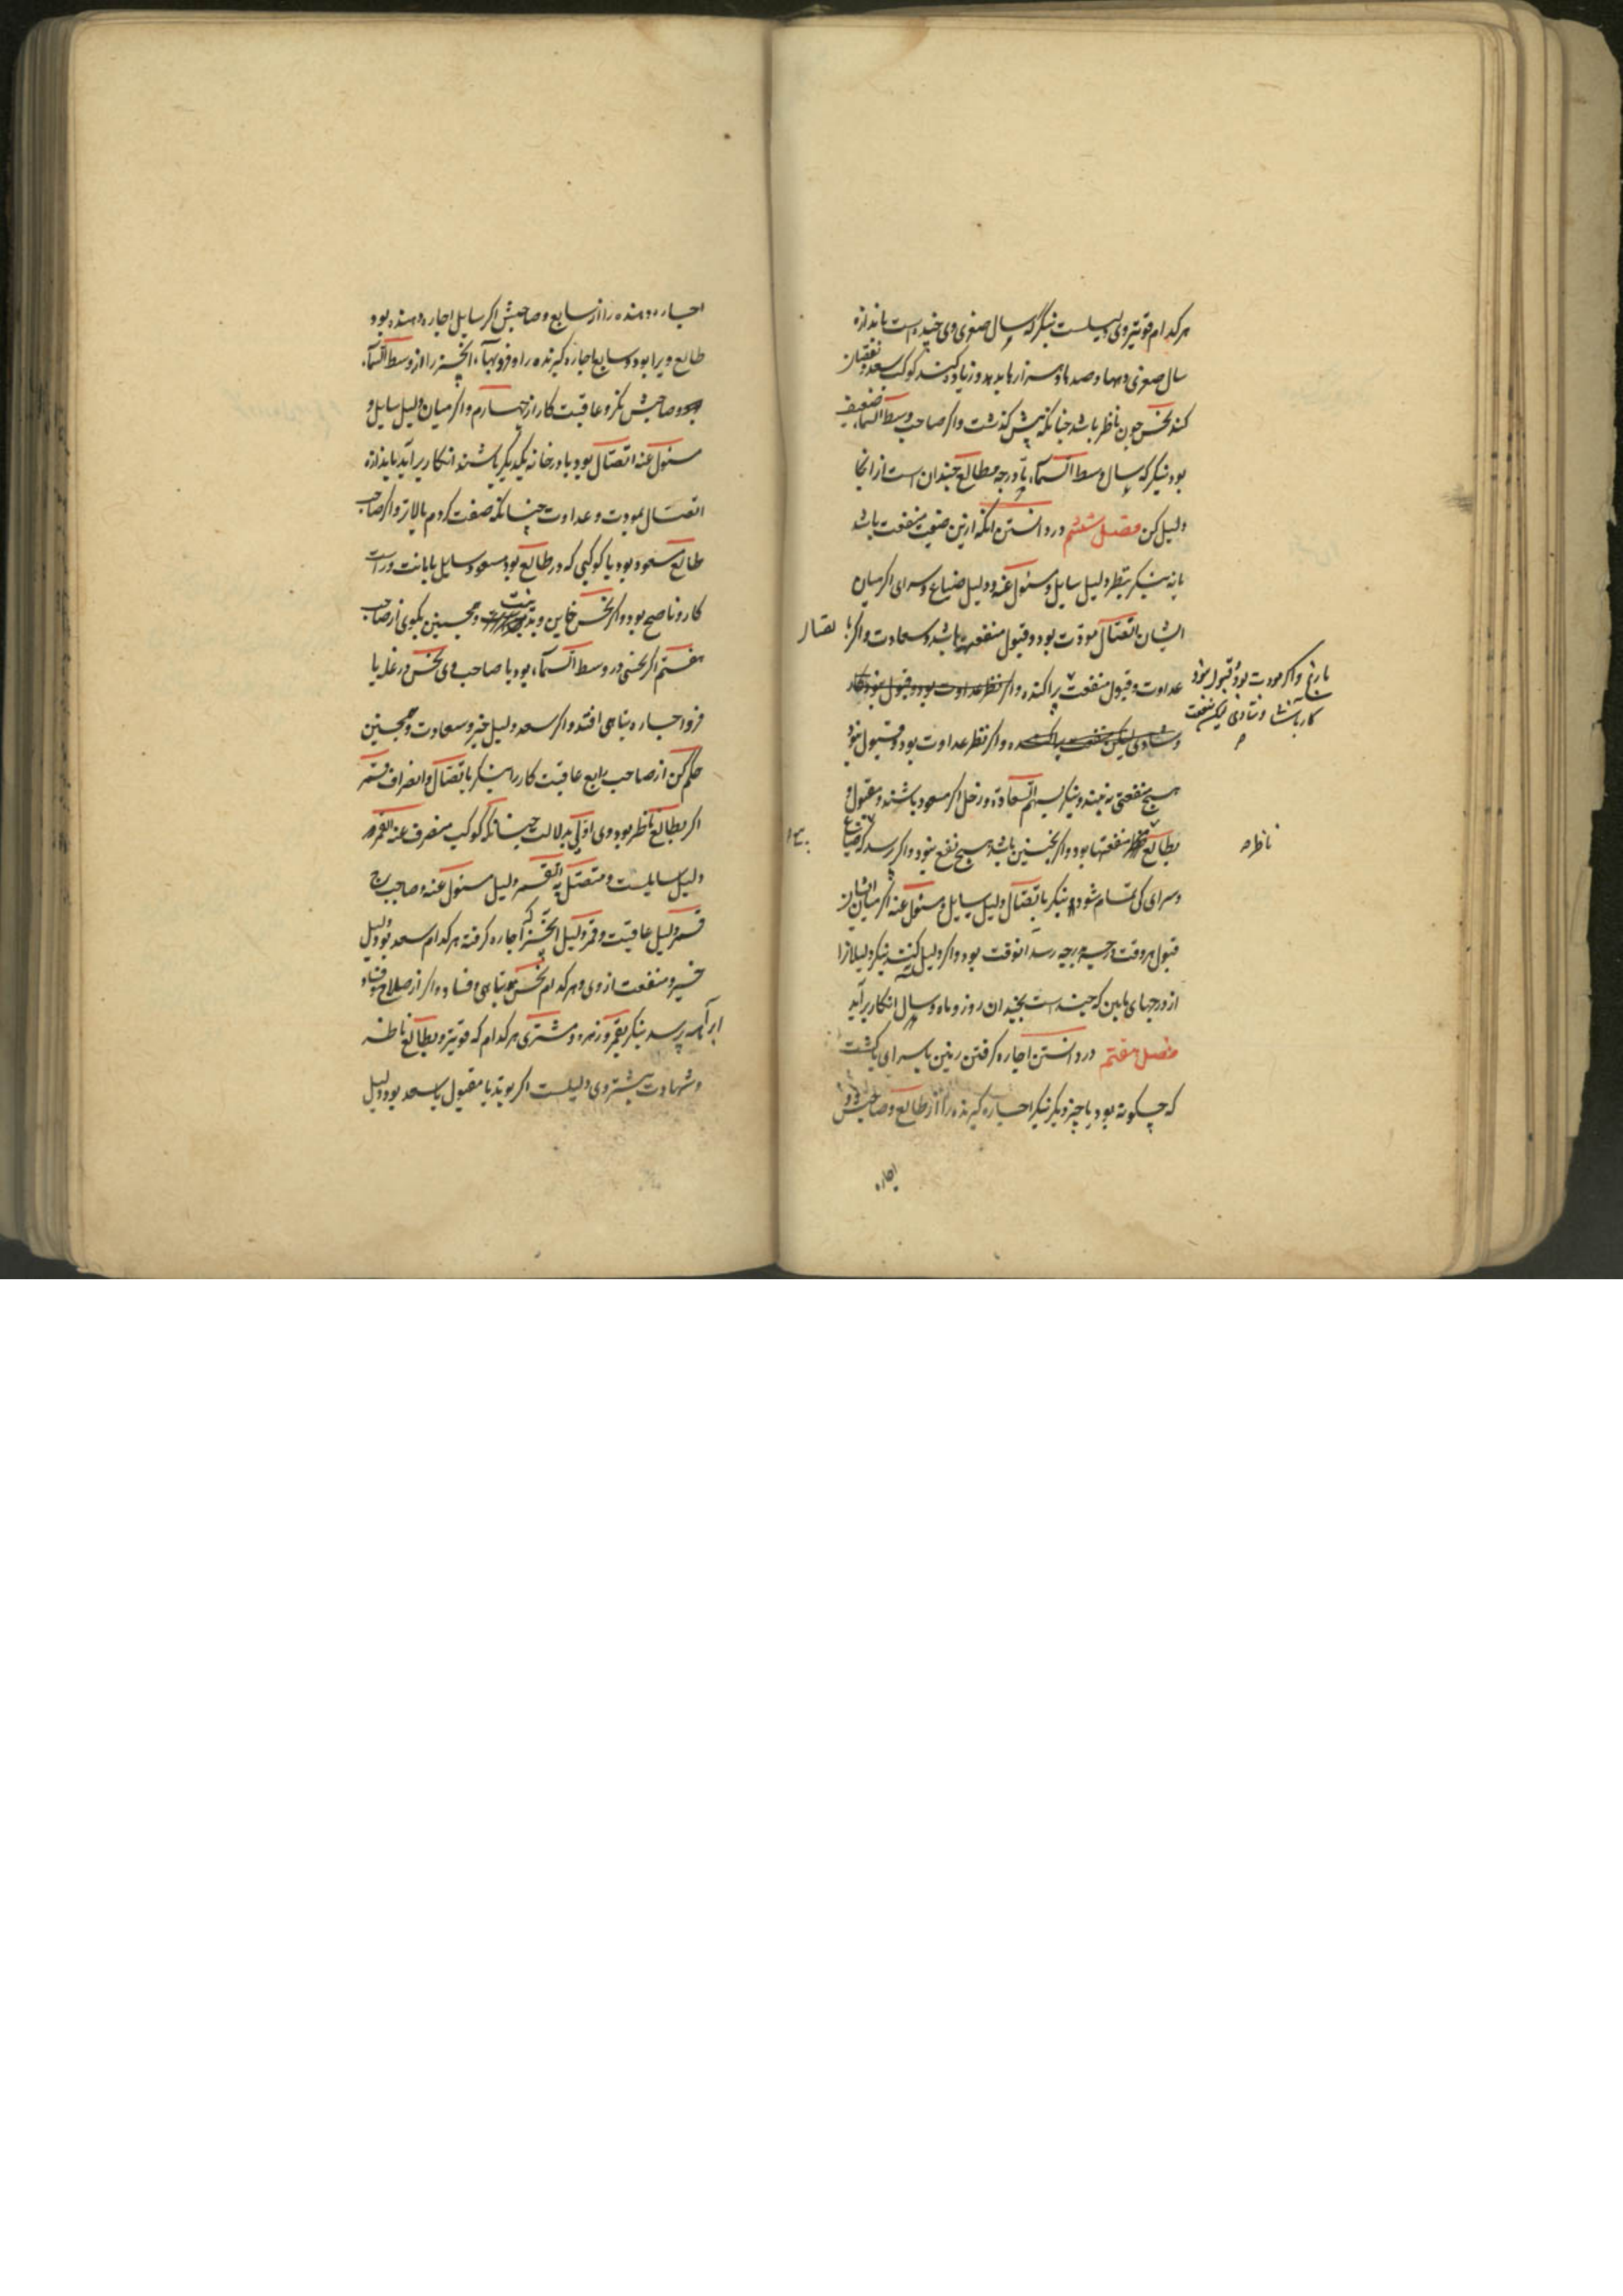 هر کدام قویتر وی دلیلست بنگر که سال صغری وی چند است باندازه
سال صغری دهها و صدها و هزارها بدهد و زیاده کند کوکب سعد و نقصان
کند نحس چون ناظر باشد چنانکه پیش گذشت و اگر صاحب وسط السما ضعیف
بود بنگر که سال وسط السماء یا درجه مطالع چندان است از آنجا
دلیل کن فصل ششم در دانستن آنکه ازین ضیعت منفعت باشد
یا نه بنگر بنظر دلیل سایل و مسئول عنه و دلیل ضیاع و سرای اگر میان
ایشان اتصال مودت بود و قبول منفعت باشد و سعادت و اگر با اتصال
عداوت و قبول منفعت پراکنده و اگر نظر عداوت بود و قبول نبود کار
با رنج و اگر مودت بود و قبول نبود
کار باشد و شادی لیکن منفعت
و شادی لیکن منفعت پراکنده و اگر نظر عداوت بود و قبول نبود
هیچ منفعتی نه بیند و بنگر بسهم السعادة و زحل اگر مسعود باشند و مقبول و
بطالع منفعتها بود و اگر نحسین باشد هیچ نفع نبود و اگر پرسد که ضیاع
ناظر
و سرای کی تمام شود بنگر باتصال دلیل سایل و مسئول عنه اگر میان ایشان
قبول هر وقت درجه بدرجه رسد آنوقت بود و اگر دلیل کنند بنگر دلیلانرا
از درجهای مابین که چند است بچندان روز و ماه و سال آنکار برآید
فصل هفتم در دانستن اجاره گرفتن زمین یا سرای یا کشت
که چگونه بود یا چیز دیگر بنگر اجاره گیرنده را از طالع و صاحبش و
اجاره
اجاره دهنده را از سابع و صاحبش اگر سایل اجاره دهنده بود
طالع ویرا بود و سابع اجاره گیرنده را و فروبهاء آنچیز را از وسط السماء
و صاحبش نگر و عاقبت کار از چهارم و اگر میان دلیل سایل و
مسئول عنه اتصال بود یا در خانه یکدیگر باشند آنکار برآید باندازه
اتصال بمودت و عداوت چنانکه صفت کردم بالاتر و اگر صاحب
طالع مسعود بود یا کوکبی که در طالع بود مسعود سایل با امانت و راست
کار و ناصح بود و اگر نحس خاین و بد نیت و همچنین بگوی از صاحب
هفتم اگر نحسی در وسط السماء بود یا صاحب وی نحس در غله یا
فرو اجاره تباهی افتد و اگر سعد دلیل خیر و سعادت و همچنین
حکم کن از صاحب رابع عاقبت کار را بنگر باتصال و انصراف قمر
اگر بطالع ناظر بود وی اولی بدلالت چنانکه کوکب منصرف عنه القمر
دلیل سایلست و متصل به القمر دلیل مسئول عنه و صاحب برج
قمر دلیل عاقبت و قمر دلیل آنچیز که اجاره گرفته هر کدام سعد بود دلیل
خیر و منفعت از وی و هر کدام نحس بود تباهی و فساد و اگر از صلاح و فساد
پرسد بنگر بقمر و زهره و مشتری هر کدام که قویتر و بطالع ناظر
و شهادت بیشتر وی دلیلست اگر بوتد یا مقبول یا سعد بود دلیل